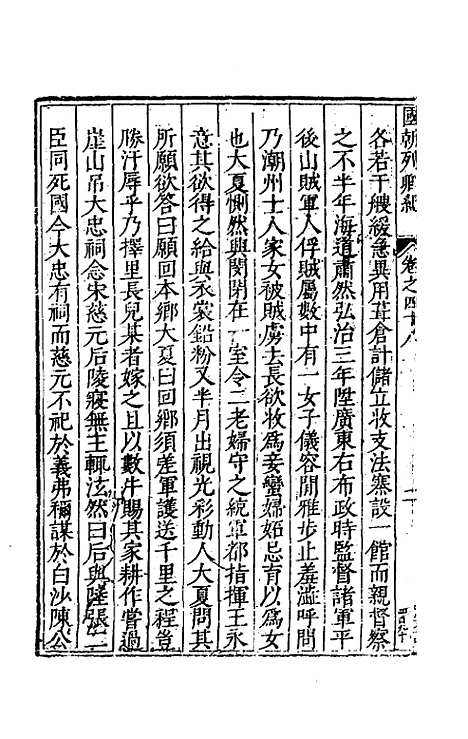 國朝列卿紀 卷之四十八
各若干艘緩急異用葺倉計儲立收支法寨設一館而親督察
之不半年海道肅然弘治三年陞廣東右布政時監督諸軍平
後山賊軍人俘賊屬數中有一女子儀容閒雅步止羞澁呼問
乃潮州士人家女被賊虜去長欲收爲妾蠻婦妬忌育以爲女
也大夏惻然與閔閉在一室令二老婦守之統軍都指揮王永
意其欲得之給與衣裳鉛粉又半月出視光彩動人大夏問其
所願欲答曰願回本鄉大夏曰回鄉須差軍護送千里之程豈
勝汗辱乎乃擇里長兒某者嫁之且以數牛賜其家耕作嘗過
崖山吊大忠祠念宋慈元后陵寢無主輒泫然曰后與陸張二
臣同死國今大忠有祠而慈元不祀於義弗稱謀於白沙陳公